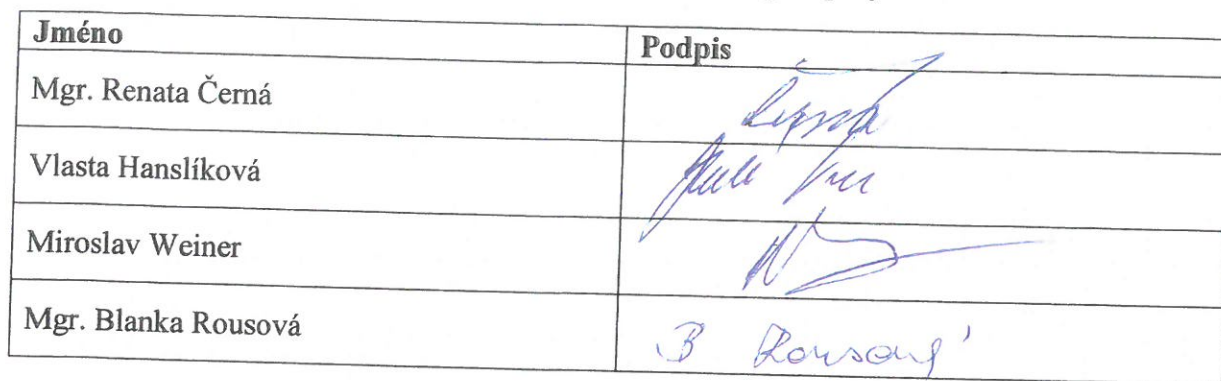 Jméno Podpis
Mgr. Renata Černá Černá
Vlasta Hanslíková
Miroslav Weiner
Mgr. Blanka Rousová B Rousová